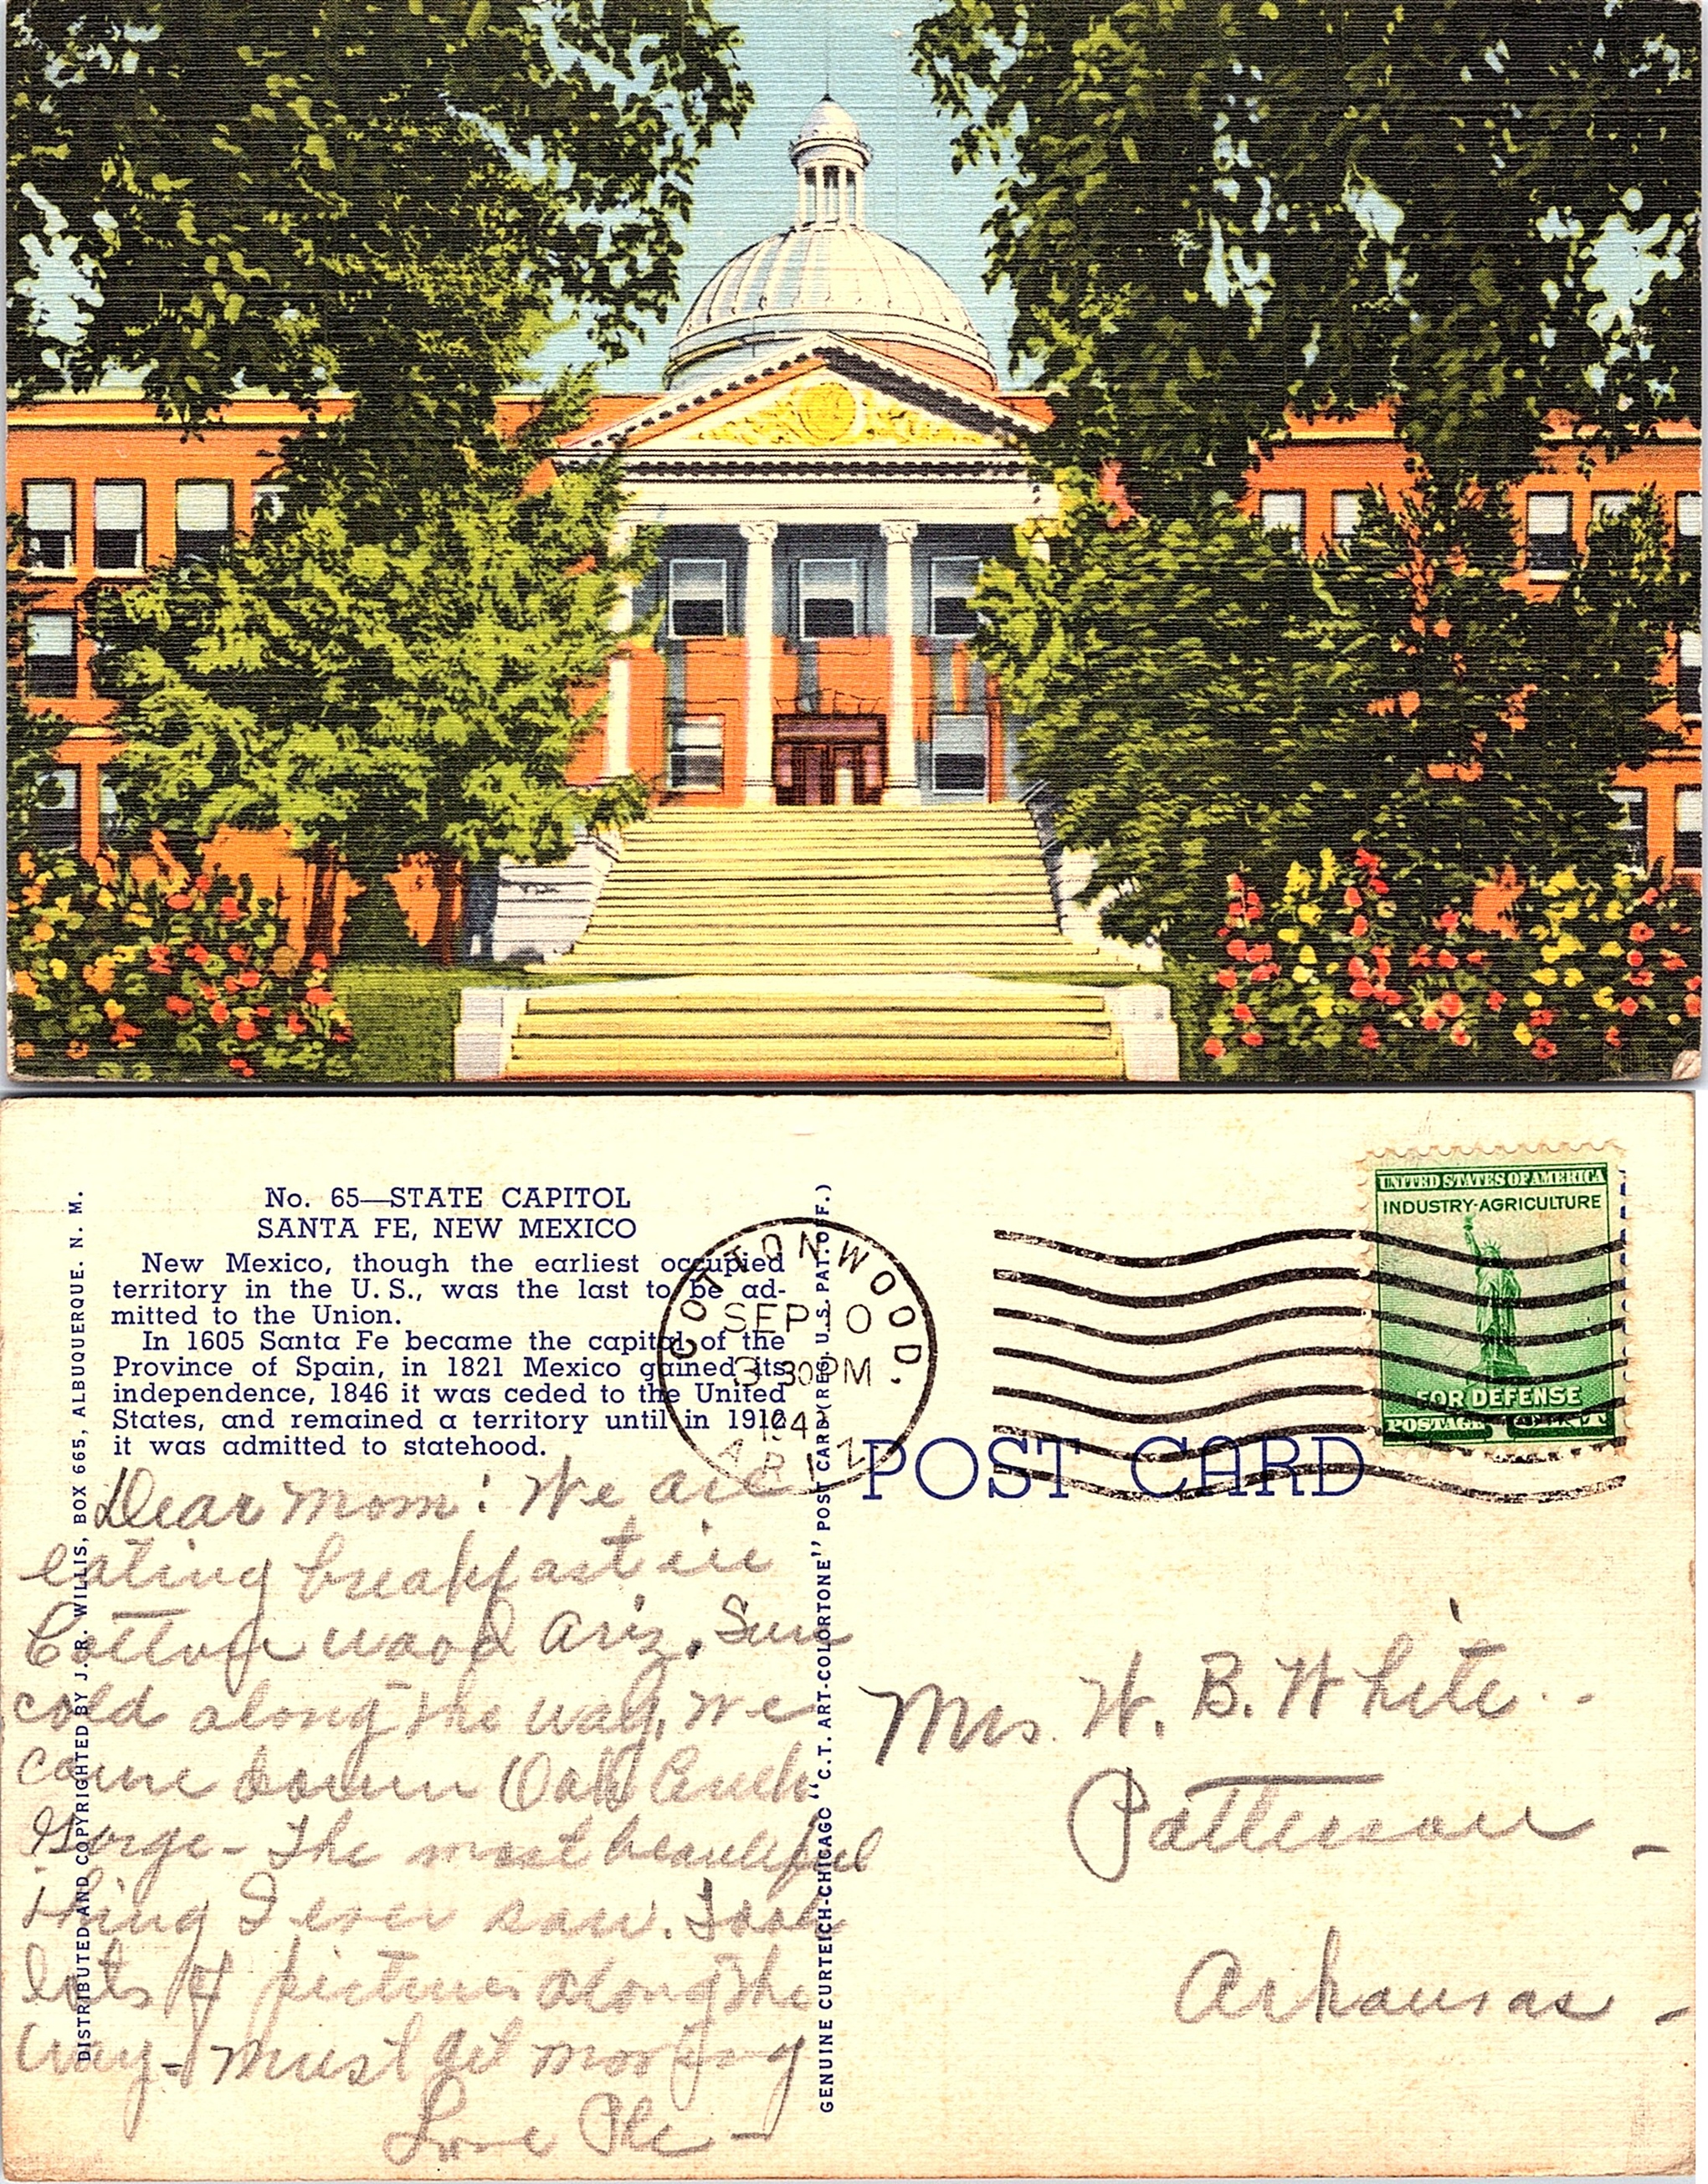 No. 65—STATE CAPITOL
SANTA FE, NEW MEXICO
New Mexico, though the earliest occupied
territory in the U. S., was the last to be ad-
mitted to the Union.
In 1605 Santa Fe became the capital of the
Province of Spain, in 1821 Mexico gained its
independence, 1846 it was ceded to the United
States, and remained a territory until in 1912
it was admitted to statehood.
DISTRIBUTED AND COPYRIGHTED BY J. R. WILLIS, BOX 665, ALBUQUERQUE. N. M.
GENUINE CURTEICH-CHICAGO "C.T. ART-COLORTONE" POST CARD (REG. U.S. PAT. OF F.)
COTTONWOOD.
SEP 10
3 30PM
194
ARIZ
UNITED STATES OF AMERICA
INDUSTRY-AGRICULTURE
FOR DEFENSE
POSTAGE 1 CENT
POST CARD
Dear Mom: We are
eating breakfast in
Cotton wood Ariz.
cold along the way. We
came down Oak Creek
Gorge - The most beautiful
thing I ever saw. Took
lots of pictures along the
way - Must get moving
Love
Mrs. W. B. White
Patterson -
Arkansas -